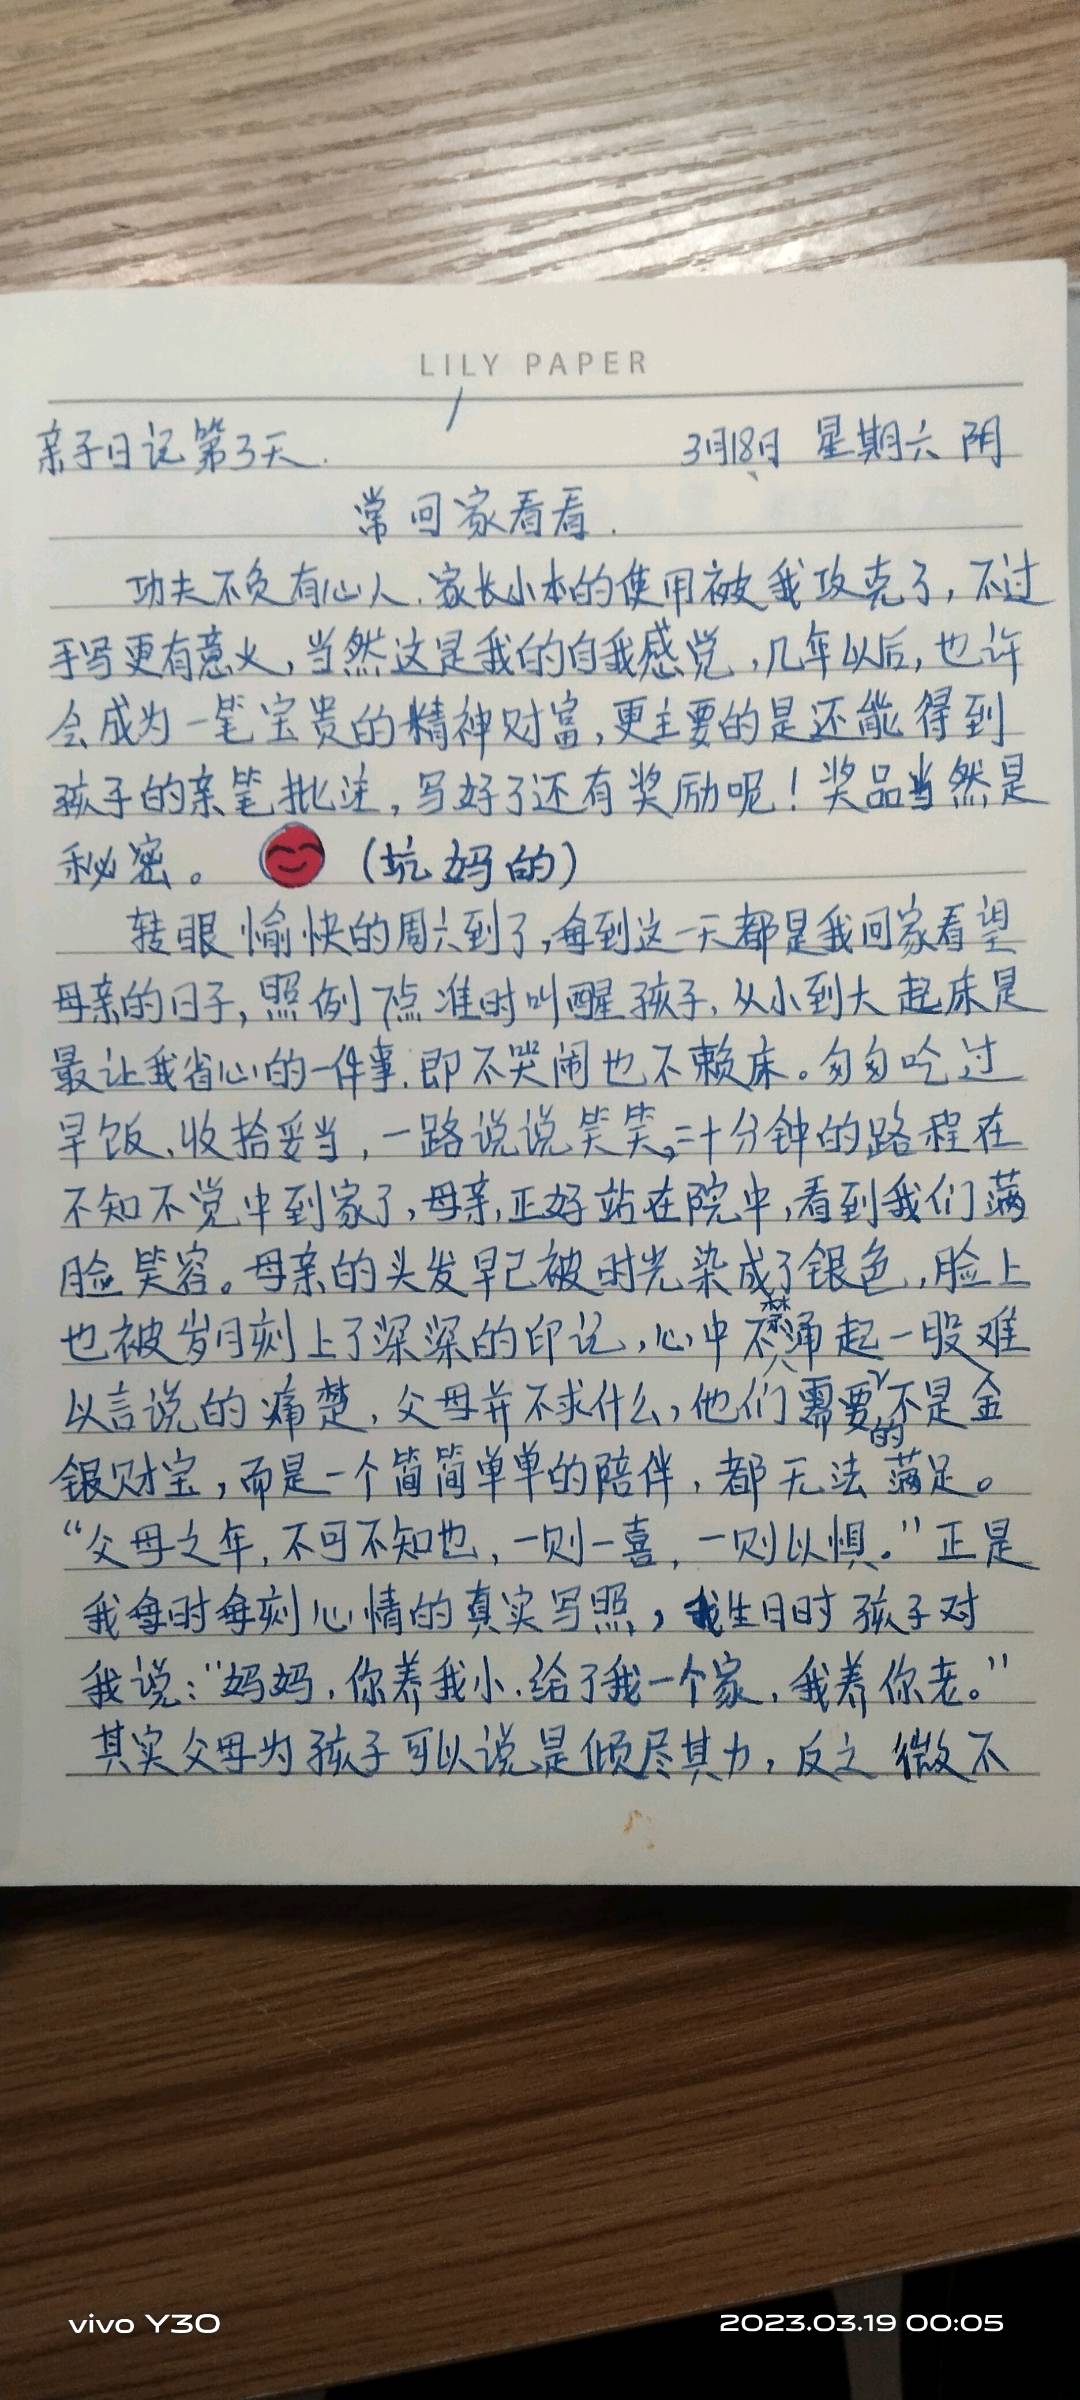 LILY PAPER
亲子日记第3天.
3月18日 星期六 阴
常回家看看.
功夫不负有心人.家长小本的使用被我攻克了,不过
手写更有意义,当然这是我的自我感觉,几年以后,也许
会成为一笔宝贵的精神财富,更主要的是还能得到
孩子的亲笔批注,写好了还有奖励呢!奖品当然是
秘密。 (坑妈的)
转眼愉快的周六到了,每到这一天都是我回家看望
母亲的日子,照例7点准时叫醒孩子.从小到大起床是
最让我省心的一件事.即不哭闹也不赖床。匆匆吃过
早饭.收拾妥当,一路说说笑笑,二十分钟的路程在
不知不觉中到家了,母亲正好站在院中,看到我们满
脸笑容。母亲的头发早已被时光染成了银色,脸上
也被岁月刻上了深深的印记,心中不禁涌起一股难
以言说的痛楚,父母并不求什么,他们需要的不是金
银财宝,而是一个简简单单的陪伴,都无法满足。
“父母之年,不可不知也,一则一喜,一则以惧.”正是
我每时每刻心情的真实写照,我生日时孩子对
我说:“妈妈,你养我小.给了我一个家,我养你老。”
其实父母为孩子可以说是倾尽其力,反之微不
vivo Y30
2023.03.19 00:05